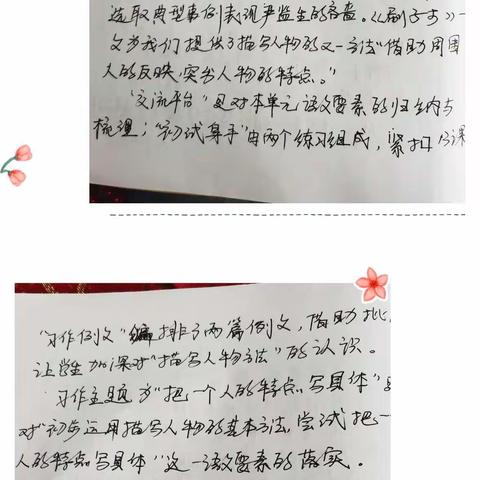 选取典型事例表现严监生的吝啬。《刷子李》一
文为我们提供了描写人物的又一方法"借助周围
人的反映,突出人物的特点。"
"交流平台"是对本单元语文要素的归纳与
梳理;"初试身手"由两个练习组成,紧扣课
"习作例文"编排了两篇例文,借助批
让学生加深对"描写人物方法"的认识。
习作主题为"把一个人的特点写具体"是
对"初步运用描写人物的基本方法,尝试把一
人的特点写具体"这一语文要素的落实。